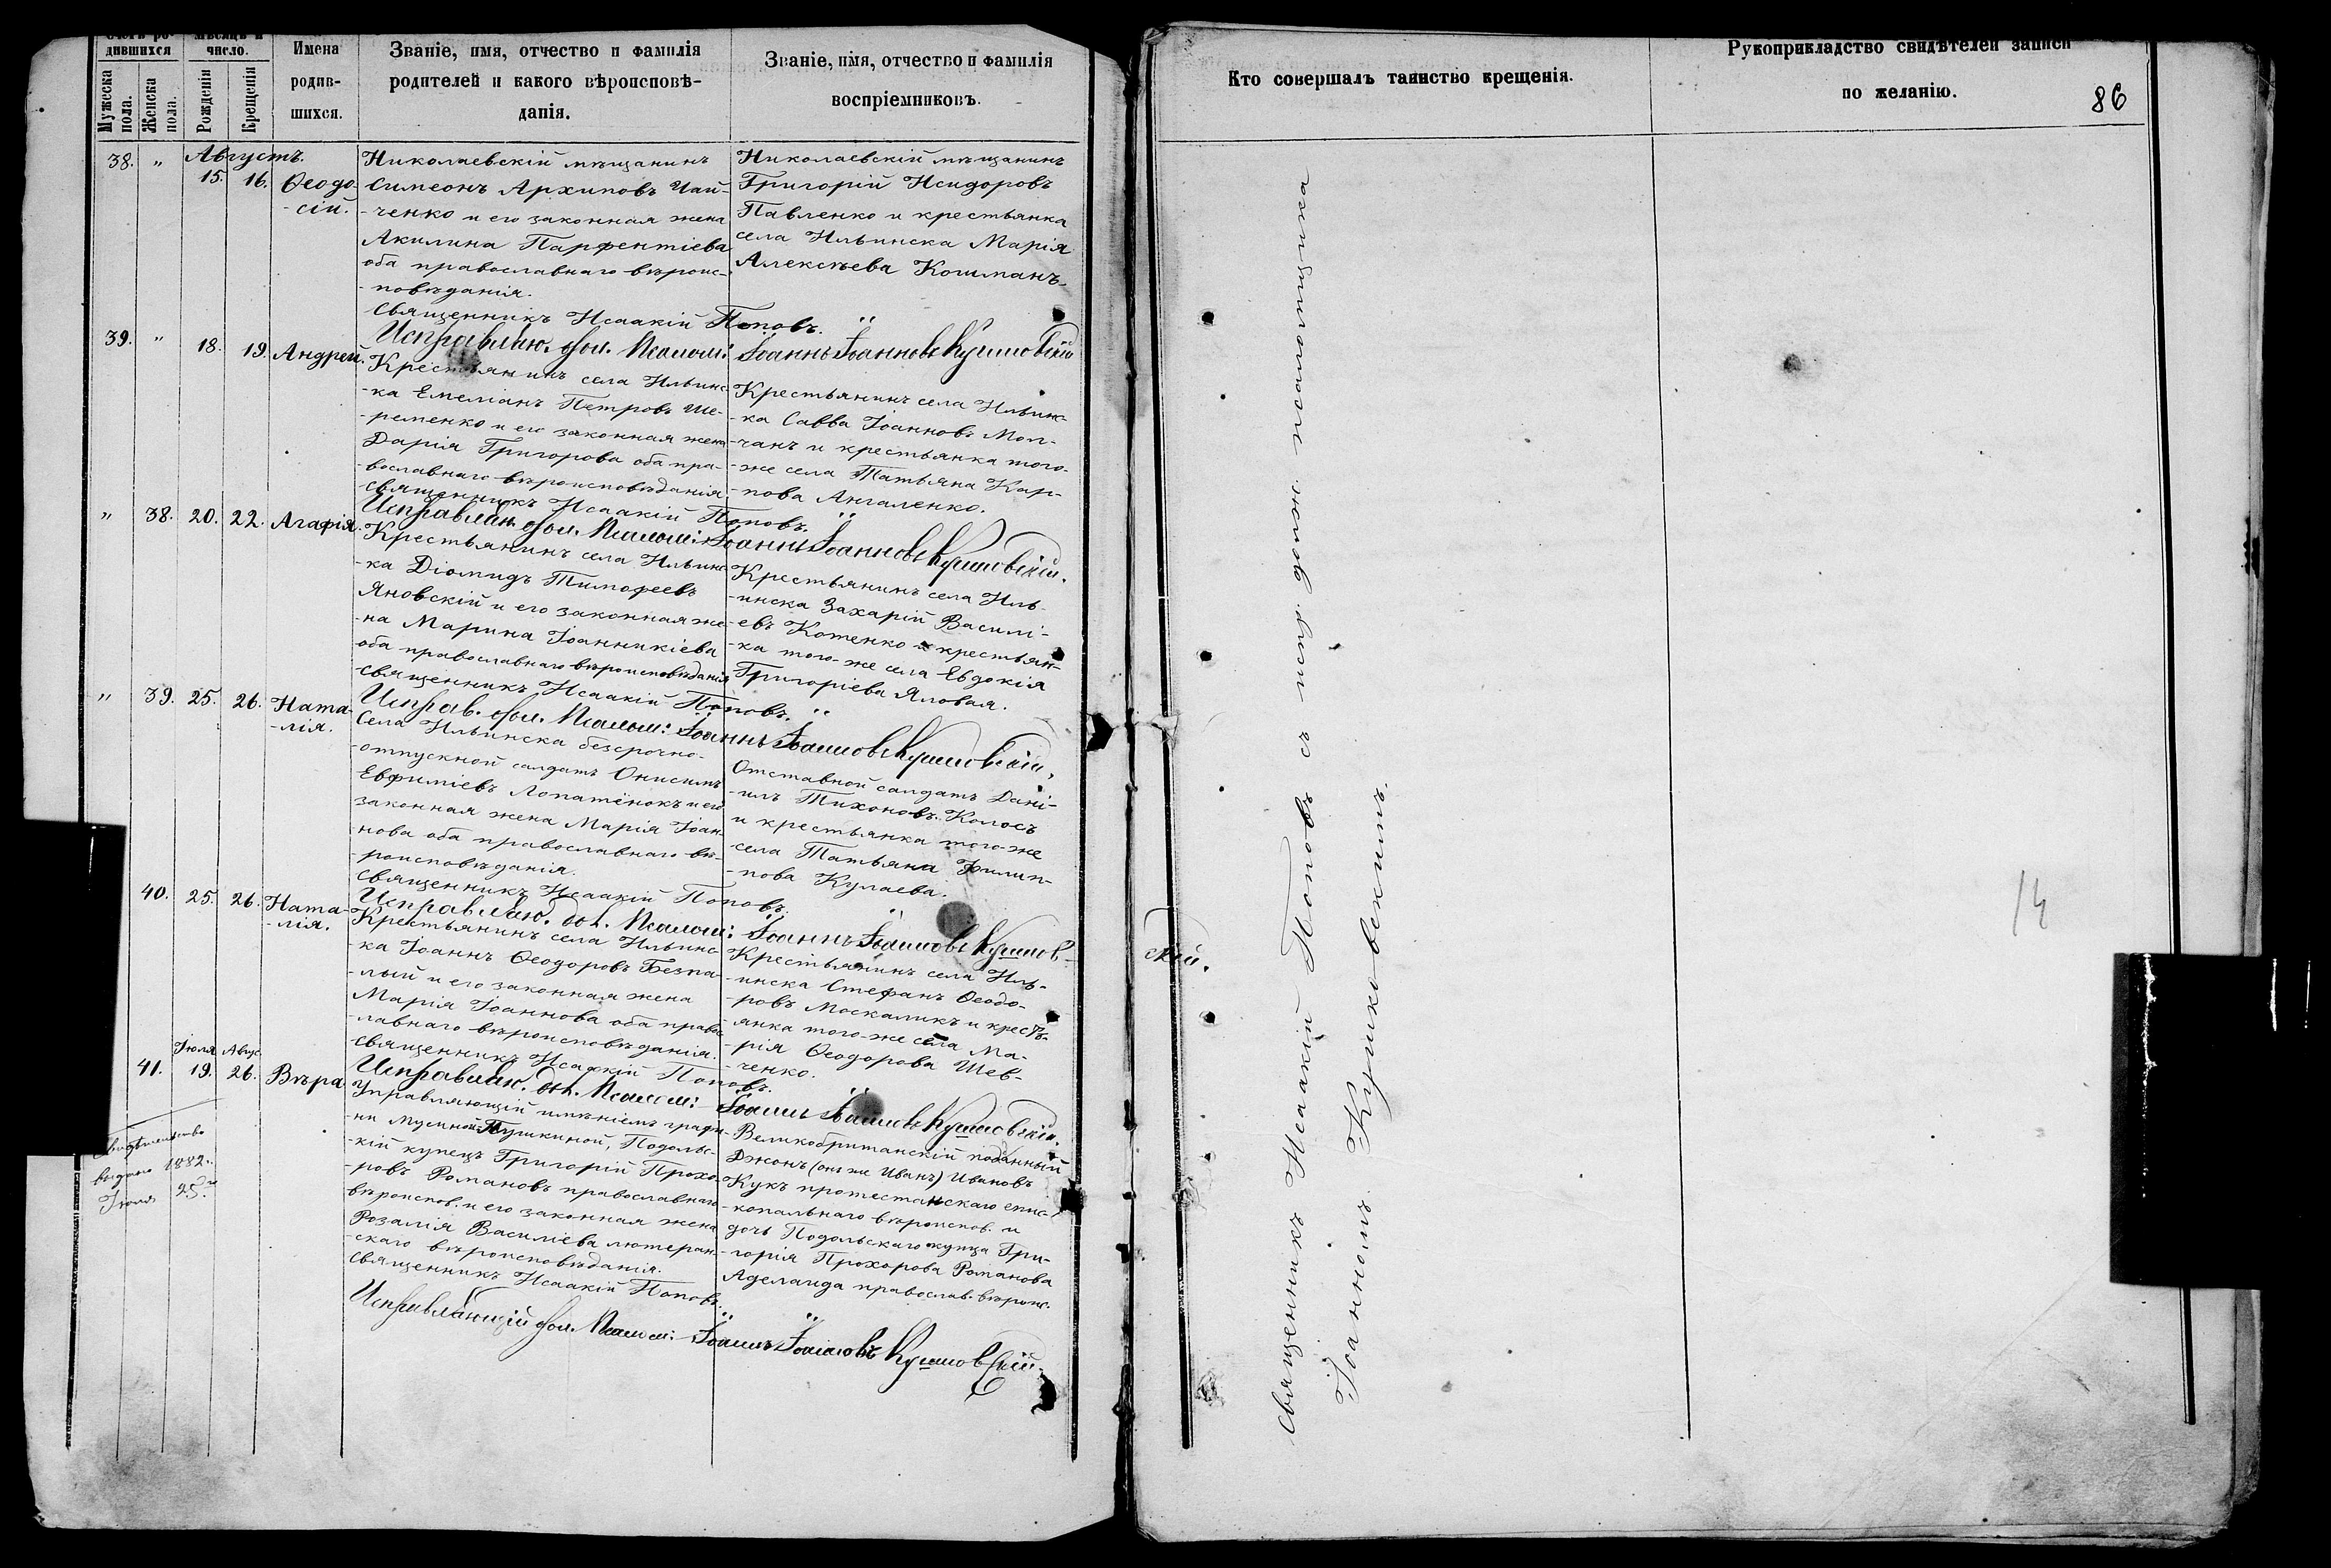 Счетъ ро-
дившихся
Мѣсяцъ и
число.
Мужеска
пола.
Женска
пола.
Рожденія
Крещенія
Имена
родив-
шихся.
Званіе, имя, отчество и фамилія
родителей и какого вѣроисповѣ-
данія.
Званіе, имя, отчество и фамилія
воспріемниковъ.
38. „ Августъ.
15. 16. Ѳеодо-
-сій.
Николаевскій мѣщанинъ
Симеонъ Архиповъ Чай-
-ченко и его законная жена
Акилина Парфентіева
оба православнаго вѣроис-
-повѣданія.
Священникъ Исаакій Поповъ.
Николаевскій мѣщанинъ
Григорій Исидоровъ
Павленко и крестьянка
села Ильинска Марія
Алексѣева Кошманъ.
Исправляю. дол. Псалом: Іоаннъ Іоанновъ Кушковскій
39. „ 18. 19. Андрей.
Крестьянинъ села Ильинс-
-ка Емеліанъ Петровъ Ше-
-ременко и его законная жена
Дарія Григорова оба пра-
-вославнаго вѣроисповѣданія
Священникъ Исаакій Поповъ.
Крестьянинъ села Ильинс-
-ка Савва Іоанновъ Мол-
-чанъ и крестьянка того-
-же села Татьяна Кар-
-пова Ангаленко.
Исправляю. дол. Псалом: Іоаннъ Іоанновъ Кушковскій.
„ 38. 20. 22. Агафія.
Крестьянинъ села Ильинс-
-ка Діомидъ Тимофеевъ
Яновскій и его законная же-
-на Марина Іоанникіева
оба православнаго вѣроисповѣданія
Священникъ Исаакій Поповъ.
Крестьянинъ села Иль-
-инска Захарій Василі-
-евъ Котенко и крестьян-
-ка того-же села Евдокія
Григоріева Яловая.
Исправ. дол. Псалом: Іоаннъ Іоанновъ Кушковскій.
„ 39. 25. 26. Ната-
-лія.
Села Ильинска безсрочно-
-отпускной солдатъ Онисимъ
Евфиміевъ Лопатёнокъ и его
законная жена Марія Іоан-
-нова оба православнаго вѣ-
-роисповѣданія.
Священникъ Исаакій Поповъ.
Отставной солдатъ Дані-
-илъ Тихоновъ Колосъ
и крестьянка того-же
села Татьяна Филип-
-пова Кулаева.
Исправляю. дол. Псалом: Іоаннъ Іоанновъ Кушков-
ской.
40. 25. 26. Ната-
-лія.
Крестьянинъ села Ильинс-
-ка Іоаннъ Ѳеодоровъ Безпа-
-лый и его законная жена
Марія Іоаннова оба правос-
-лавнаго вѣроисповѣданія.
Священникъ Исаакій Поповъ.
Крестьянинъ села Иль-
-инска Стефанъ Ѳеодо-
-ровъ Москаликъ и кресть-
-янка того-же села Ма-
-рія Ѳеодорова Шев-
-ченко.
Исправляю. дол. Псалом: Іоаннъ Іоанновъ Кушковскій.
Іюля Авгус.
41. 19. 26. Вѣра
Управляющій имѣніемъ графи-
-ни Мусиной-Пушкиной, Подольс-
-кій купецъ Григорій Прохо-
-ровъ Романовъ православнаго
вѣроиспов. и его законная жена
Розалія Василіева лютеран-
-скаго вѣроисповѣданія.
Священникъ Исаакій Поповъ.
Великобританскій поданный
Джонъ (онъ же Иванъ) Ивановъ
Кукъ протестанскаго епис-
-копальнаго вѣроиспов. и
дочь Подольскаго купца Гри-
-горія Прохорова Романова
Аделаида православ. вѣроис.
Исправляющій дол. Псалом: Іоаннъ Іоанновъ Кушковскій.
Свидѣтельство
выдано 1882.
Іюля 25.
Кто совершалъ таинство крещенія.
Рукоприкладство свидѣтелей записи
по желанію.
86
Священникъ Исаакій Поповъ съ испр. долж. псаломщика
Іоанномъ Кушковскимъ.
14